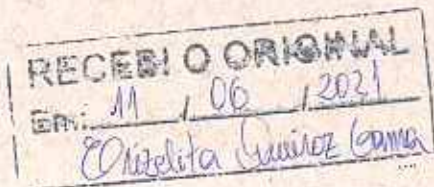 RECEBI O ORIGINAL
Em: 11 / 06 / 2021
Queiroz Gama